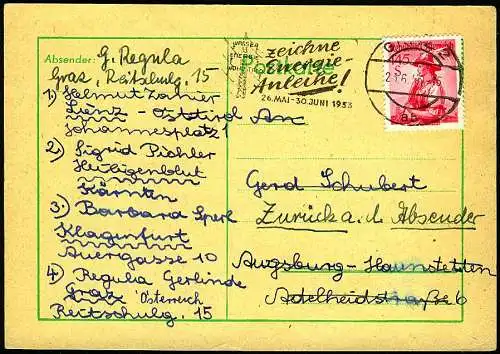 Absender: G. Regula
Graz, Reitschulg. 15
1) Helmut Zahier
Lienz - Osttirol
Johannesplatz 1
2) Sigrid Pichler
Heiligenblut
Kärnten
3. Barbara Sperl
Klagenfurt
Auergasse 10
4) Regula Gerlinde
Graz Österreich
Reitschulg. 15
WASSER
ENERGIE
WOHLSTAND
zeichne
Energie-
Anleihe!
26.MAI-30.JUNI 1953
Postkarte
An
Gerd Schubert
Zurück a. d. Absender
Augsburg - Haunstetten
Adelheidstraße 6